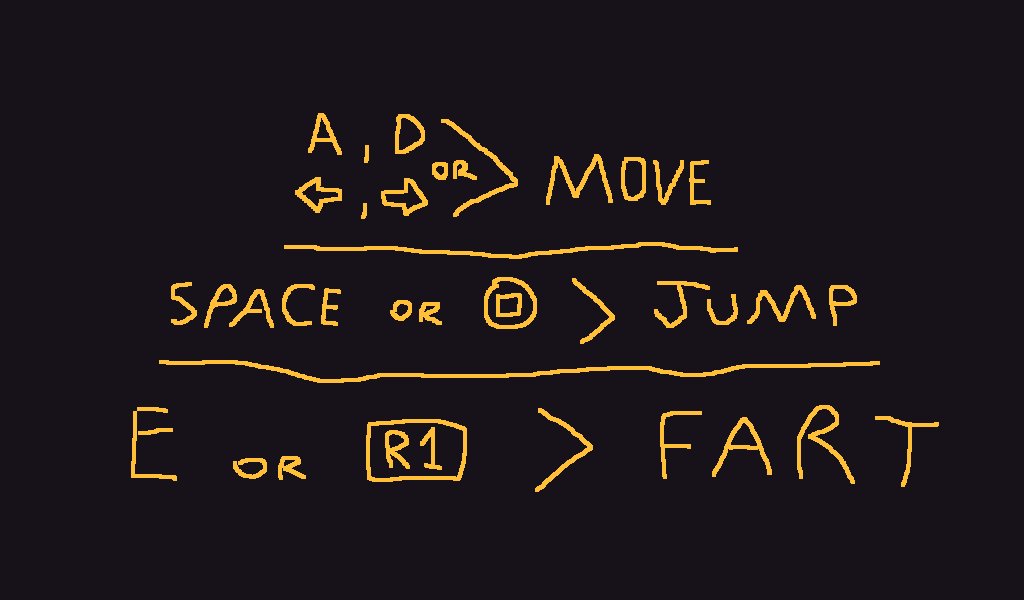 A, D
OR
←, → > MOVE
SPACE OR > JUMP
E OR R1 > FART